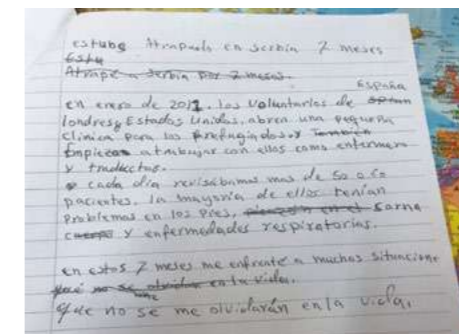 estube Atrapado en serbia 7 meses
Estu
Atrape a serbia por 7 meses.
España
en enero de 2017. los voluntarios de
londres y Estados Unidos, abren una pequeña
clinica para los Refugiados. y También
Empiezo a trabajar con ellos como enfermero
y traductor.
cada día revisábamos mas de 50 o 60
pacientes. la mayoría de ellos tenían
problemas en los pies, sarna
cuerpo y enfermedades respiratorias.
en estos 7 meses me enfrente a muchas situacione
que no se olvidan en la vida.
que no se me olvidarán en la vida.